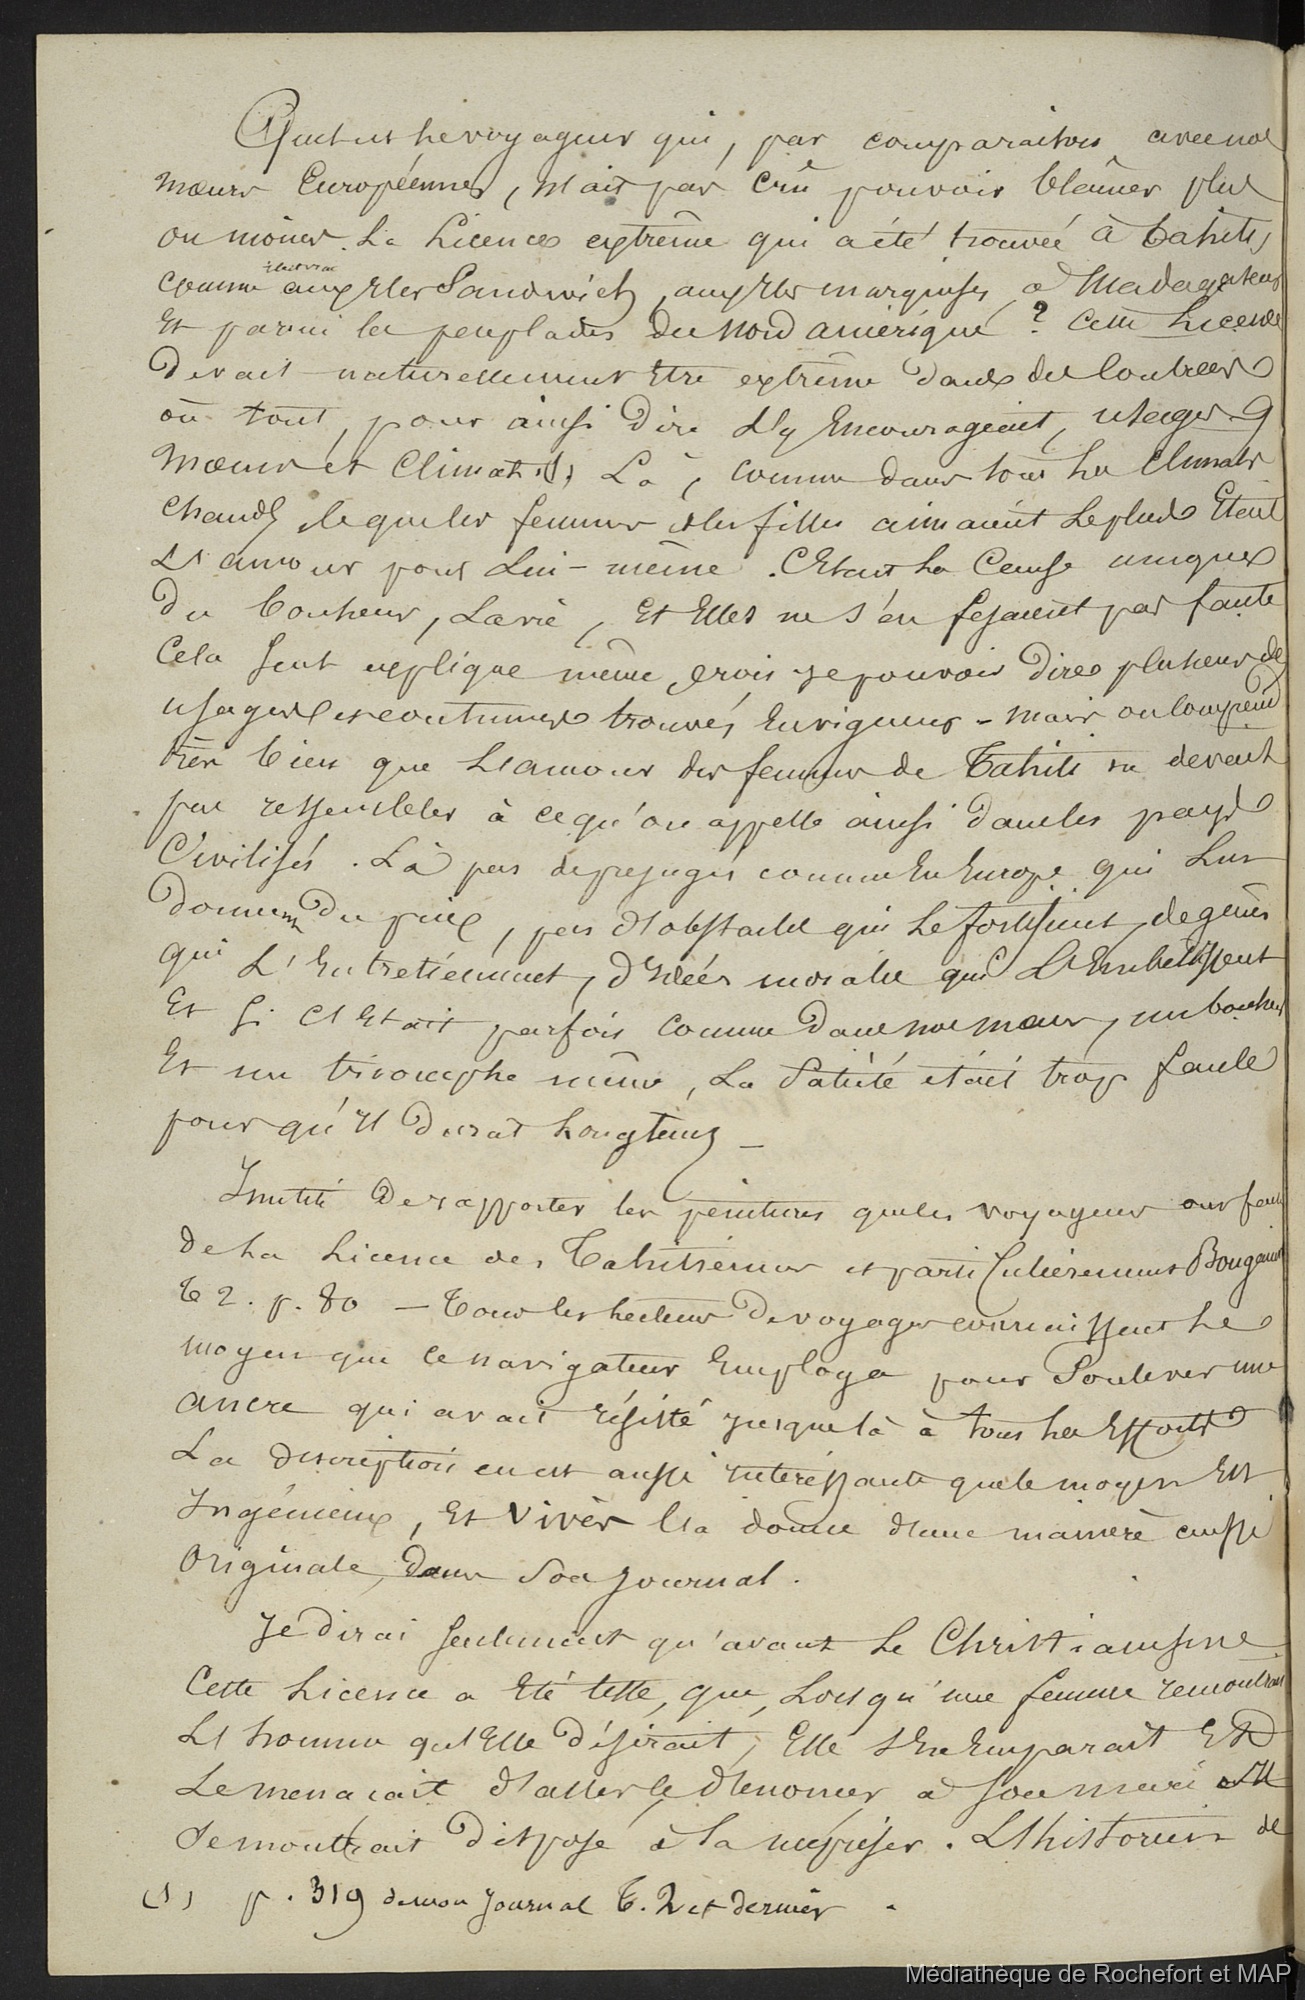 Quel est le voyageur qui, par comparaison avec nos
mœurs Européennes, n'ait pas crû pouvoir blâmer plus
ou moins la licence extrême qui a été trouvée à Tahiti,
comme aux Iles Sandwich, aux Iles marquises, à Madagascar
Et parmi les peuplades du Nord amérique ? Cette Licence
devait naturellement Etre extrême dans des Contrées
où tout, pour ainsi dire l'y Encourageait, usages
Mœurs et Climat (1). Là, comme dans tous les Climats
chauds, ce que les femmes et les filles aimaient le plus Etait
L'amour pour Lui-même. C'Etait la Cause unique
du bonheur, La vie, Et Elles ne s'en fesaient pas faute
Cela seul explique même, crois-je pouvoir dire plusieurs des
usages et coutumes trouvés En vigueur - mais on comprend
très bien que L'amour des femmes de Tahiti ne devait
pas ressembler à ce qu'on appelle ainsi dans les pays
Civilisés. Là pas de préjugés comme En Europe qui Lui
donnent du prix, pas d'obstacles qui Le fortifient, de gênes
qui L'Entretiennent, d'Idées morales qui L'Embellissent
Et Si C'Etait parfois comme dans nos mœurs, un bonheur
Et un triomphe même, La Satiété était trop facile
pour qu'Il durat Longtems -
Inutile de rapporter les peintures que les voyageurs ont fait
de La Licence des Tahitiennes et particulièrement Bougainv
T 2. p. 80 - Tous les Lecteurs de voyages connaissent Le
moyen que ce navigateur Employa pour Soulever une
ancre qui avait résisté jusque là à tous les Efforts
La description en est aussi intéressante que le moyen Est
Ingénieux, Et Vivès l'a donne d'une manière aussi
Originale, dans Son Journal.
Je dirai seulement qu'avant Le Christianisme
Cette Licence a Eté telle, que, Lorsqu'une femme rencontrait
L'homme qu'Elle désirait, Elle s'En Emparait Et
Le menaçait d'aller le dénoncer à son mari s'Il
Se montrait disposé à la mépriser. L'historien de
(1) p. 319 de mon Journal T. 2 et dernier.
Médiathèque de Rochefort et MAP